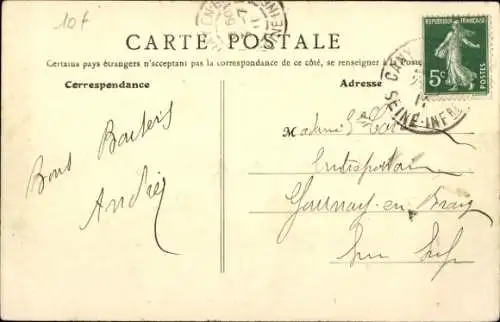 10f
CARTE POSTALE
Certains pays étrangers n'acceptant pas la correspondance de ce côté, se renseigner à la Poste
Correspondance
Adresse
RÉPUBLIQUE FRANÇAISE
5c
POSTES
CANY
SEINE-INF
Bons Baisers
André
Madame
Entrepositaire
Gournay-en-Bray
Seine Inf